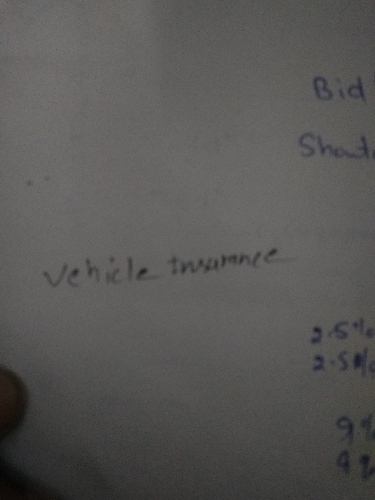 Bid
Vehicle Insurance
2.5%
2.5%
9%
9%